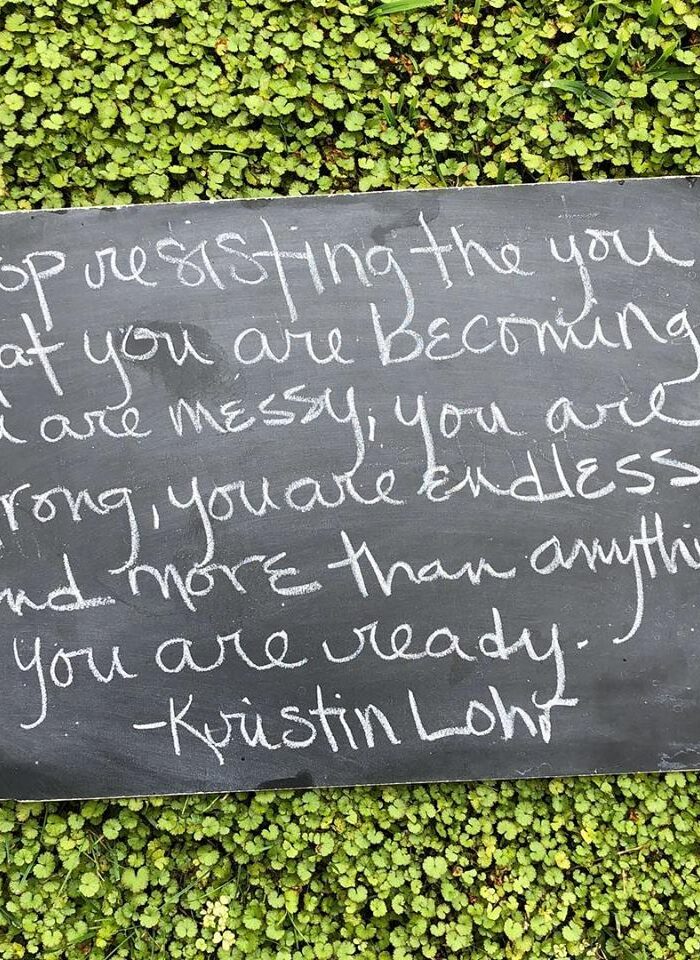 op resisting the you
at you are becoming
are messy, you are
rong, you are endless
nd more than anythi
you are ready.
-Kristin Lohr